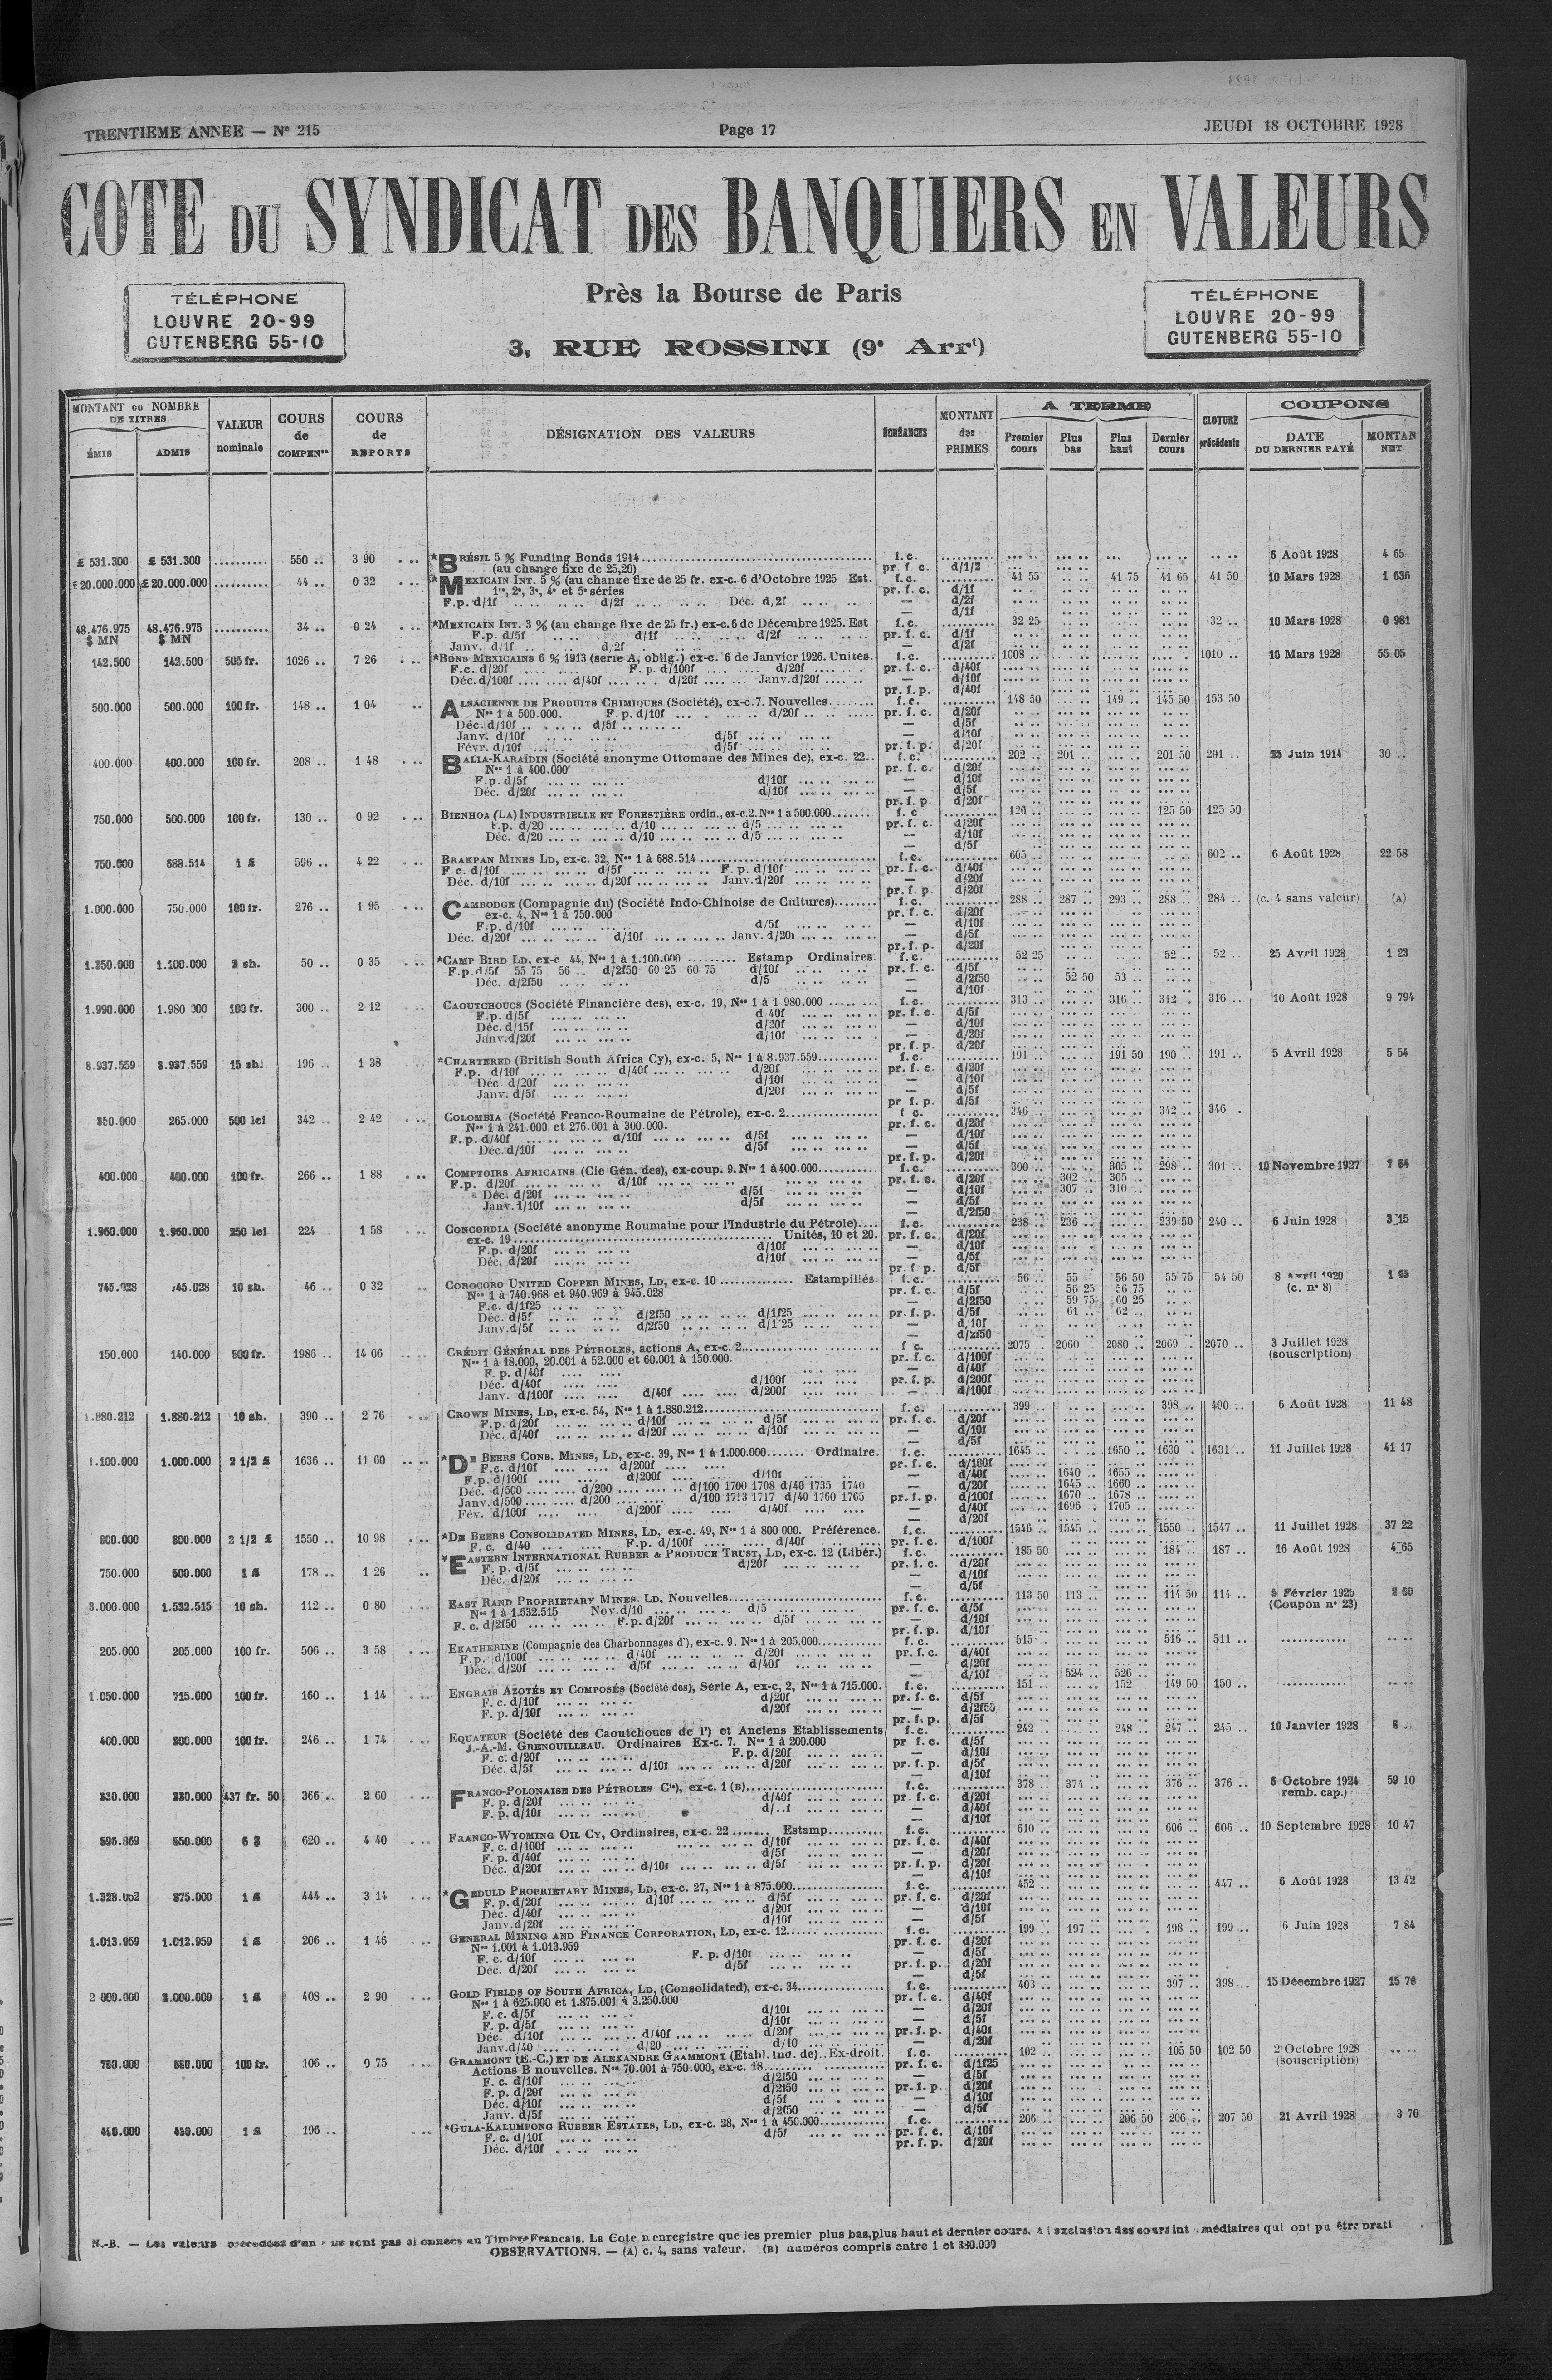 TRENTIEME ANNEE — N° 215 Page 17 JEUDI 18 OCTOBRE 1928
COTE DU SYNDICAT DES BANQUIERS EN VALEURS
Près la Bourse de Paris
TÉLÉPHONE
LOUVRE 20-99
GUTENBERG 55-10
3, RUE ROSSINI (9e Arrt)
TÉLÉPHONE
LOUVRE 20-99
GUTENBERG 55-10
MONTANT ou NOMBRE DE TITRES ÉMIS ADMIS VALEUR nominale COURS de COMPENon COURS de REPORTS DÉSIGNATION DES VALEURS ÉCHÉANCES MONTANT des PRIMES A TERME Premier cours Plus bas Plus haut Dernier cours CLOTURE précédente COUPONS DATE DU DERNIER PAYÉ MONTAN NET
£ 531.300 £ 531.300 .......... 550 .. 3 90 *BRÉSIL 5 % Funding Bonds 1914 f.c. 6 Août 1928 4 65
(au change fixe de 25,20) pr. f. c. d/1/2
£ 20.000.000 £ 20.000.000 .......... 44 .. 0 32 *MEXICAIN INT. 5 % (au change fixe de 25 fr. ex-c. 6 d'Octobre 1925 Est. f.c. 41 55 41 75 41 65 41 50 10 Mars 1928 1 636
1re, 2e, 3e, 4e et 5e séries pr. f. c. d/1f
F.p. d/1f d/2f Déc. d/2f — d/2f
— d/1f
48.476.975 $ MN 48.476.975 $ MN .......... 34 .. 0 24 *MEXICAIN INT. 3 % (au change fixe de 25 fr.) ex-c. 6 de Décembre 1925. Est f.c. 32 25 32 .. 10 Mars 1928 0 981
F.p. d/5f d/1f d/2f pr. f. c. d/1f
Janv. d/1f d/2f — d/2f
142.500 142.500 505 fr. 1026 .. 7 26 *BONS MEXICAINS 6 % 1913 (serie A, oblig.) ex-c. 6 de Janvier 1926. Unites. f.c. 1008 .. 1010 .. 10 Mars 1928 55 05
F.c. d/20f F. p. d/100f d/20f pr. f. c. d/40f
Déc. d/100f d/40f d/20f Janv. d/20f — d/10f
pr. f. p. d/40f
500.000 500.000 100 fr. 148 .. 1 04 ALSACIENNE DE PRODUITS CHIMIQUES (Société), ex-c. 7. Nouvelles f.c. 148 50 149 .. 145 50 153 50
Nos 1 à 500.000. F. p. d/10f d/20f pr. f. c. d/20f
Déc. d/10f d/5f — d/5f
Janv. d/10f d/5f — d/10f
Févr. d/10f d/5f pr. f. p. d/20f
400.000 400.000 100 fr. 208 .. 1 48 BALIA-KARAÏDIN (Société anonyme Ottomane des Mines de), ex-c. 22.. f.c. 202 .. 201 .. 201 50 201 .. 25 Juin 1914 30 ..
Nos 1 à 400.000 pr. f. c. d/20f
F. p. d/5f d/10f — d/10f
Déc. d/20f d/10f — d/5f
pr. f. p. d/20f
750.000 500.000 100 fr. 130 .. 0 92 BIENHOA (LA) INDUSTRIELLE ET FORESTIÈRE ordin., ex-c. 2. Nos 1 à 500.000 f. c 126 .. 125 50 125 50
F.p. d/20 d/10 d/5 pr. f. c. d/20f
Déc. d/20 d/10 d/5 — d/10f
— d/5f
750.000 688.514 1 £ 596 .. 4 22 BRAKPAN MINES LD, ex-c. 32, Nos 1 à 688.514 f.c. 605 .. 602 .. 6 Août 1928 22 58
F c. d/10f d/5f F. p. d/10f pr. f. c. d/40f
Déc. d/10f d/20f Janv. d/20f — d/20f
pr. f. p. d/20f
1.000.000 750.000 100 fr. 276 .. 1 95 CAMBODGE (Compagnie du) (Société Indo-Chinoise de Cultures) f.c. 288 .. 287 .. 293 .. 288 .. 284 .. (c. 4 sans valeur) (A)
ex-c. 4, Nos 1 à 750.000 pr. f. c. d/20f
F. p. d/10f d/5f — d/10f
Déc. d/20f d/10f Janv. d/20f — d/5f
pr. f. p. d/20f
1.350.000 1.100.000 2 sh. 50 .. 0 35 *CAMP BIRD LD, ex-c 44, Nos 1 à 1.100.000 Estamp Ordinaires. f.c. 52 25 52 .. 52 .. 25 Avril 1928 1 23
F.p. d/5f 55 75 56 .. d/2f50 60 25 60 75 d/10f pr. f. c. d/5f
Déc. d/2f50 d/5 — d/2f50 52 50 53 ..
— d/10f
1.990.000 1.980 000 100 fr. 300 .. 2 12 CAOUTCHOUCS (Société Financière des), ex-c. 19, Nos 1 à 1 980.000 f.c. 313 .. 316 .. 312 .. 316 .. 10 Août 1928 9 794
F.p. d/5f d 40f pr. f. c. d/5f
Déc. d/15f d/20f — d/10f
Janv. d/20f d/10f — d/20f
pr. f. p. d/20f
8.937.559 8.937.559 15 sh. 196 .. 1 38 *CHARTERED (British South Africa Cy), ex-c. 5, Nos 1 à 8.937.559 f.c. 191 .. 191 50 190 .. 191 .. 5 Avril 1928 5 54
F.p. d/10f d/40f d/20f pr. f. c. d/20f
Déc d/20f d/10f — d/10f
Janv. d/5f d/20f — d/5f
pr f. p. d/5f
265.000 500 lei 342 .. 2 42 COLOMBIA (Société Franco-Roumaine de Pétrole), ex-c. 2 f c. 346 .. 342 .. 346 .
Nos 1 à 241.000 et 276.001 à 300.000. pr. f. c. d/20f
F. p. d/40f d/10f d/5f — d/10f
Déc. d/10f d/5f — d/5f
pr. f. p. d/20f
400.000 400.000 100 fr. 266 .. 1 88 COMPTOIRS AFRICAINS (Cie Gén. des), ex-coup. 9. Nos 1 à 400.000 f.c. 300 .. 305 .. 298 .. 301 .. 10 Novembre 1927 7 64
F.p. d/20f d/10f pr. f. c. d/20f 302 .. 305 ..
Déc. d/20f d/5f — d/10f 307 .. 310 ..
Janv. d/10f d/5f — d/5f
— d/2f50
1.960.000 1.960.000 250 lei 224 1 58 CONCORDIA (Société anonyme Roumaine pour l'Industrie du Pétrole) f.c. 238 .. 236 .. 239 50 240 .. 6 Juin 1928 3 15
ex-c. 19 Unités, 10 et 20. pr. f. c. d/20f
F.p. d/20f d/10f — d/10f
Déc. d/20f d/10f — d/5f
pr. f p. d/5f
745.028 745.028 10 sh. 46 .. 0 32 COROCORO UNITED COPPER MINES, LD, ex-c. 10 Estampillés. f.c. 56 .. 55 56 50 55 75 54 50 8 Avril 1920
Nos 1 à 740.968 et 940.969 à 945.028 pr. f. c. d/5f 56 25 56 75 (c. n° 8)
F.c. d/1f25 — d/2f50 59 75 60 25
Déc. d/5f d/2f50 d/1f25 pr. f. p. d/5f 61 .. 62 ..
Janv. d/5f d/2f50 d/1 25 — d/10f
— d/2f50
150.000 140.000 500 fr. 1986 .. 14 06 CRÉDIT GÉNÉRAL DES PÉTROLES, actions A, ex-c. 2 f c. 2075 .. 2060 .. 2080 .. 2069 .. 2070 .. 3 Juillet 1928
Nos 1 à 18.000, 20.001 à 52.000 et 60.001 à 150.000. pr. f. c. d/100f (souscription)
F. p. d/40f — d/40f
Déc. d/40f d/100f pr. f. p. d/200f
Janv. d/100f d/40f d/200f — d/100f
1.880.212 1.880.212 10 sh. 390 .. 2 76 CROWN MINES, LD, ex-c. 54, Nos 1 à 1.880.212 f.c. 399 .. 398 .. 400 .. 6 Août 1928 11 48
F.p. d/20f d/10f d/5f pr. f. c. d/20f
Déc. d/40f d/20f d/10f — d/10f
— d/5f
1.100.000 1.000.000 2 1/2 £ 1636 .. 11 60 *DE BEERS CONS. MINES, LD, ex-c. 39, Nos 1 à 1.000.000 Ordinaire. f.c. 1645 .. 1650 .. 1630 . 1631 .. 11 Juillet 1928 41 17
F.c. d/10f d/200f pr. f. c. d/100f
F.p. d/100f d/200f d/10f — d/40f 1640 .. 1655 ..
Déc. d/500 d/200 d/100 1700 1708 d/40 1735 1740 — d/20f 1645 .. 1660 ..
Janv. d/500 d/200 d/100 1713 1717 d/40 1760 1765 pr. f. p. d/100f 1670 .. 1678 ..
Fév. d/100f d/200f d/40f — d/40f 1696 .. 1705 ..
— d/20f
800.000 800.000 2 1/2 £ 1550 .. 10 98 *DE BEERS CONSOLIDATED MINES, LD, ex-c. 49, Nos 1 à 800 000. Préférence. f.c. 1546 .. 1545 .. 1550 .. 1547 .. 11 Juillet 1928 37 22
F. c. d/40 F.p. d/100f d/40f pr. f. c. d/100f
750.000 500.000 1 £ 178 .. 1 26 *EASTERN INTERNATIONAL RUBBER & PRODUCE TRUST, LD, ex-c. 12 (Libér.) f.c. 185 50 184 .. 187 .. 16 Août 1928 4 65
F. p. d/5f d/20f pr. f. c. d/20f
Déc. d/20f — d/10f
— d/5f
3.000.000 1.532.515 10 sh. 112 .. 0 80 EAST RAND PROPRIETARY MINES. LD. Nouvelles f.c. 113 50 113 .. 114 50 114 .. Février 1925
Nos 1 à 1.532.515 Nov. d/10 d/5 pr. f. c. d/5f (Coupon n° 23)
F. c. d/2f50 F.p. d/20f d/5f — d/10f
pr. f. p. d/10f
205.000 205.000 100 fr. 506 .. 3 58 EKATHERINE (Compagnie des Charbonnages d'), ex-c. 9. Nos 1 à 205.000 f. c. 515 . 516 .. 511 ..
F.p. d/100f d/40f d/20f pr. f. c. d/40f
Déc. d/20f d/5f d/40f — d/20f
— d/10f 524 .. 526 ..
1.050.000 715.000 100 fr. 160 .. 1 14 ENGRAIS AZOTÉS ET COMPOSÉS (Société des), Série A, ex-c, 2, Nos 1 à 715.000. f.c. 151 .. 152 149 50 150 ..
F. c. d/10f d/20f pr. f. c. d/5f
F. p. d/10f d/20f — d/2f50
pr. f. p. d/5f
400.000 200.000 100 fr. 246 .. 1 74 EQUATEUR (Société des Caoutchoucs de l') et Anciens Etablissements f.c. 242 .. 248 .. 247 .. 245 .. 10 Janvier 1928 8 ..
J.-A.-M. GRENOUILLEAU. Ordinaires Ex-c. 7. Nos 1 à 200.000 pr f. c. d/5f
F. c. d/20f F.p. d/20f — d/10f
Déc. d/5f d/10f d/20f pr. f. p. d/5f
— d/10f
330.000 330.000 437 fr. 50 366 .. 2 60 FRANCO-POLONAISE DES PÉTROLES Cie), ex-c. 1 (B) f.c. 378 .. 374 .. 376 .. 376 .. 6 Octobre 1924 59 10
F. p. d/20f d/40f pr. f. c. d/20f remb. cap.)
F. p. d/10f — d/40f
— d/10f
596.869 550.000 6 $ 620 .. 4 40 FRANCO-WYOMING OIL CY, Ordinaires, ex-c. 22 Estamp f.c. 610 .. 606 .. 606 .. 10 Septembre 1928 10 47
F. c. d/100f d/10f pr. f. c. d/40f
F. p. d/40f d/5f — d/20f
Déc. d/20f d/10f d/5f pr. f. p. d/20f
— d/10f
875.000 1 £ 444 .. 3 14 *GEDULD PROPRIETARY MINES, LD, ex-c. 27, Nos 1 à 875.000 f.c. 452 .. 447 .. 6 Août 1928 13 42
F. p. d/20f d/10f d/5f pr. f. c. d/20f
Déc. d/40f d/20f — d/10f
Janv. d/20f d/10f — d/5f
1.013.959 1.012.959 1 £ 206 .. 1 46 GENERAL MINING AND FINANCE CORPORATION, LD, ex-c. 12 f.c. 199 .. 197 .. 198 .. 199 .. 6 Juin 1928 7 84
Nos 1.001 à 1.013.959 pr. f. c. d/20f
F. c. d/10f F. p. d/10f — d/5f
Déc. d/20f d/5f pr. f. p. d/20f
— d/5f
2 000.000 2.000.000 1 £ 408 .. 2 90 GOLD FIELDS OF SOUTH AFRICA, LD, (Consolidated), ex-c. 34 f.c. 403 .. 397 .. 398 .. 15 Décembre 1927 15 76
Nos 1 à 625.000 et 1.875.001 à 3.250.000 pr. f. c. d/40f
F. c. d/5f d/10f — d/20f
F. p. d/5f d/10f — d/5f
Déc. d/10f d/40f d/20f pr. f. p. d/40f
Janv. d/40 d/20 d/10 — d/20f
750.000 680.000 100 fr. 106 .. 0 75 GRAMMONT (E.-C.) ET DE ALEXANDRE GRAMMONT (Etabl. Ind. de).. Ex-droit. f.c. 102 .. 105 50 102 50 2 Octobre 1928
Actions B nouvelles. Nos 70.001 à 750.000, ex-c. 18 pr. f. c. d/1f25 (souscription)
F. c. d/10f d/2f50 — d/5f
F. p. d/20f d/2f50 pr. f. p. d/20f
Déc. d/10f d/5f — d/10f
Janv. d/5f d/2f50 — d/5f
450.000 450.000 1 £ 196 .. *GULA-KALUMPONG RUBBER ESTATES, LD, ex-c. 28, Nos 1 à 450.000 f.c. 206 .. 206 50 206 .. 207 50 21 Avril 1928 3 70
F. c. d/10f d/5f pr. f. c. d/10f
Déc. d/10f pr. f. p. d/20f
N.-B. — Les valeurs précédées d'un * ne sont pas abonnées au Timbre Français. La Cote n enregistre que les premier plus bas, plus haut et dernier cours, à l exclusion des cours int médiaires qui ont pu être prati
OBSERVATIONS. — (A) c. 4, sans valeur. (B) numéros compris entre 1 et 330.000